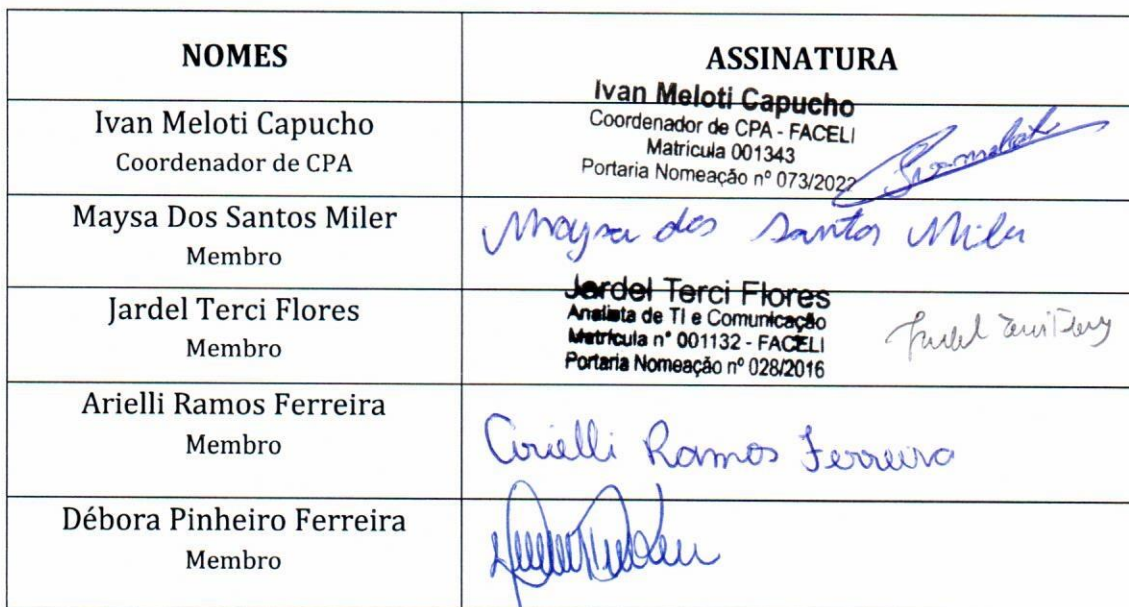 NOMES
ASSINATURA
Ivan Meloti Capucho
Coordenador de CPA
Ivan Meloti Capucho
Coordenador de CPA - FACELI
Matricula 001343
Portaria Nomeação nº 073/2022
Maysa Dos Santos Miler
Membro
Maysa dos Santos Miler
Jardel Terci Flores
Membro
Jardel Terci Flores
Analista de TI e Comunicação
Matrícula n° 001132 - FACELI
Portaria Nomeação nº 028/2016
Arielli Ramos Ferreira
Membro
Arielli Ramos Ferreira
Débora Pinheiro Ferreira
Membro